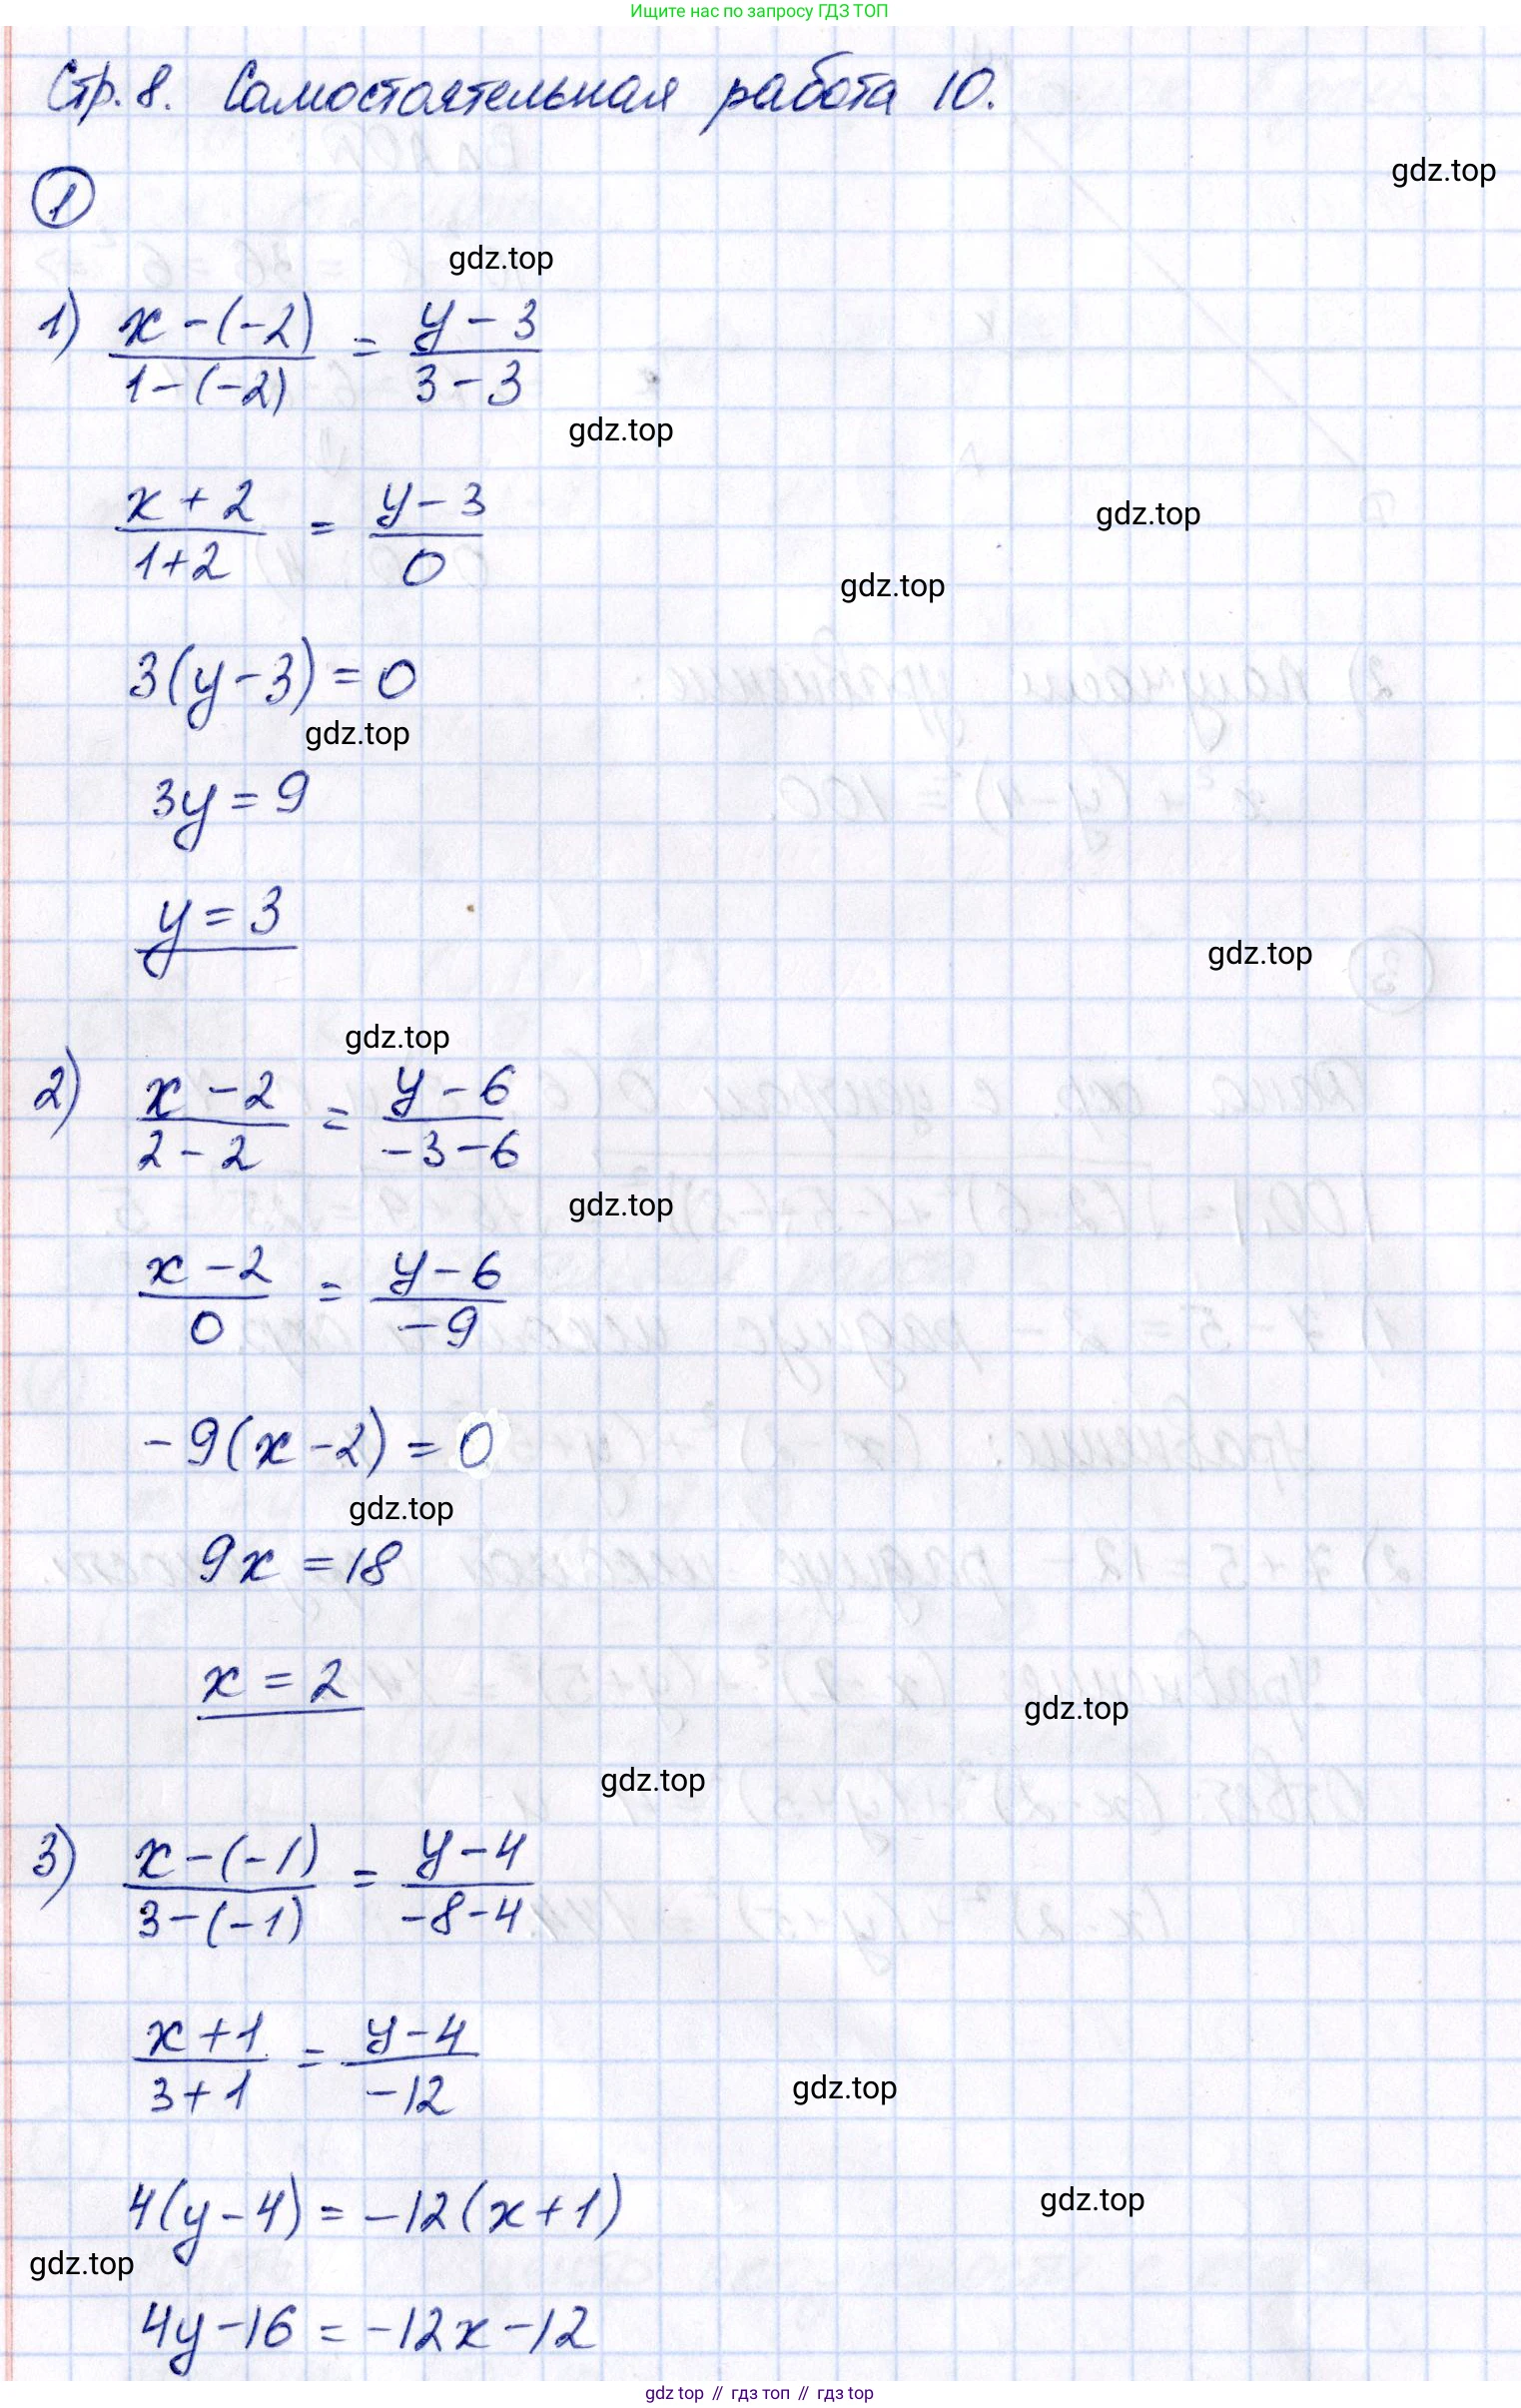 Ищите нас по запросу ГДЗ ТОП
Стр. 8. Самостоятельная работа 10.
gdz.top
1
gdz.top
1) (x-(-2))/(1-(-2)) = (y-3)/(3-3)
gdz.top
(x+2)/(1+2) = (y-3)/0
gdz.top
gdz.top
3(y-3)=0
gdz.top
3y=9
y=3
gdz.top
gdz.top
2) (x-2)/(2-2) = (y-6)/(-3-6)
gdz.top
(x-2)/0 = (y-6)/(-9)
-9(x-2)=0
gdz.top
9x=18
x=2
gdz.top
gdz.top
3) (x-(-1))/(3-(-1)) = (y-4)/(-8-4)
(x+1)/(3+1) = (y-4)/(-12)
gdz.top
4(y-4)=-12(x+1)
gdz.top
gdz.top
4y-16=-12x-12
gdz top // гдз топ // гдз top